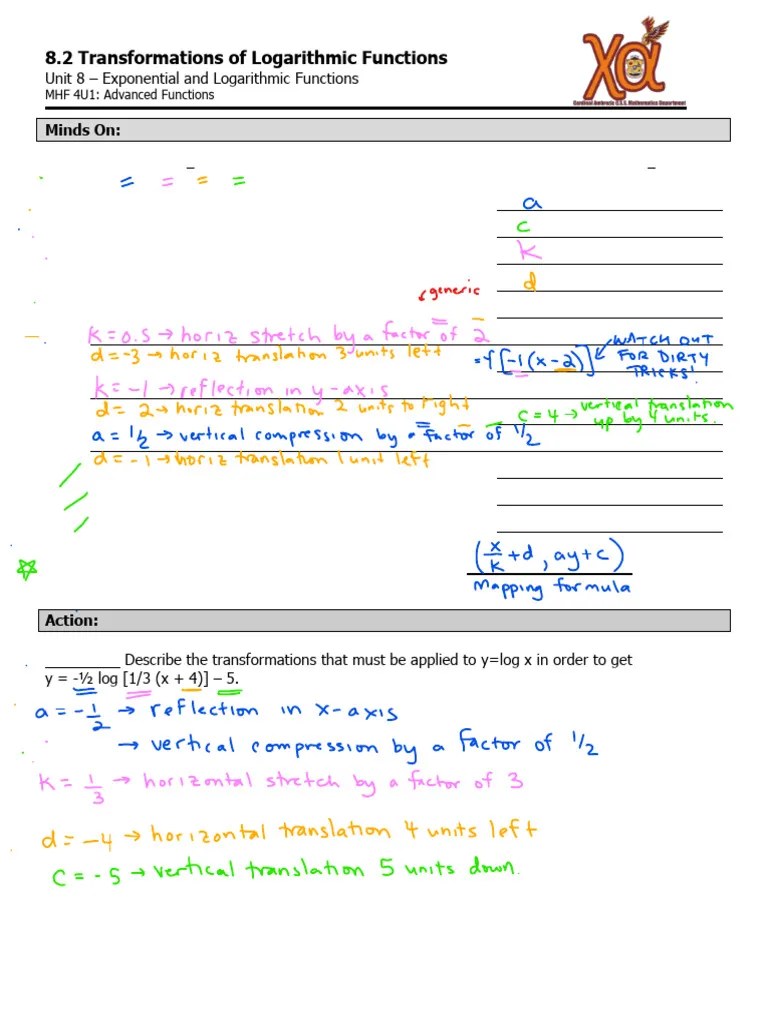 8.2 Transformations of Logarithmic Functions
Unit 8 – Exponential and Logarithmic Functions
MHF 4U1: Advanced Functions
xα
Cardinal Ambrozic C.S.S. Mathematics Department
Minds On:
a
c
k
d
generic
k = 0.5 → horiz stretch by a factor of 2
d = -3 → horiz translation 3 units left
= f[-1(x-2)]
WATCH OUT
FOR DIRTY
TRICKS!
k = -1 → reflection in y-axis
d = 2 → horiz translation 2 units to right
c = 4 → vertical translation
up by 4 units.
a = 1/2 → vertical compression by a factor of 1/2
d = -1 → horiz translation 1 unit left
(x/k + d, ay + c)
Mapping formula
Action:
__________ Describe the transformations that must be applied to y=log x in order to get
y = -½ log [1/3 (x + 4)] – 5.
a = -1/2 → reflection in x-axis
→ vertical compression by a factor of 1/2
k = 1/3 → horizontal stretch by a factor of 3
d = -4 → horizontal translation 4 units left
c = -5 → vertical translation 5 units down.